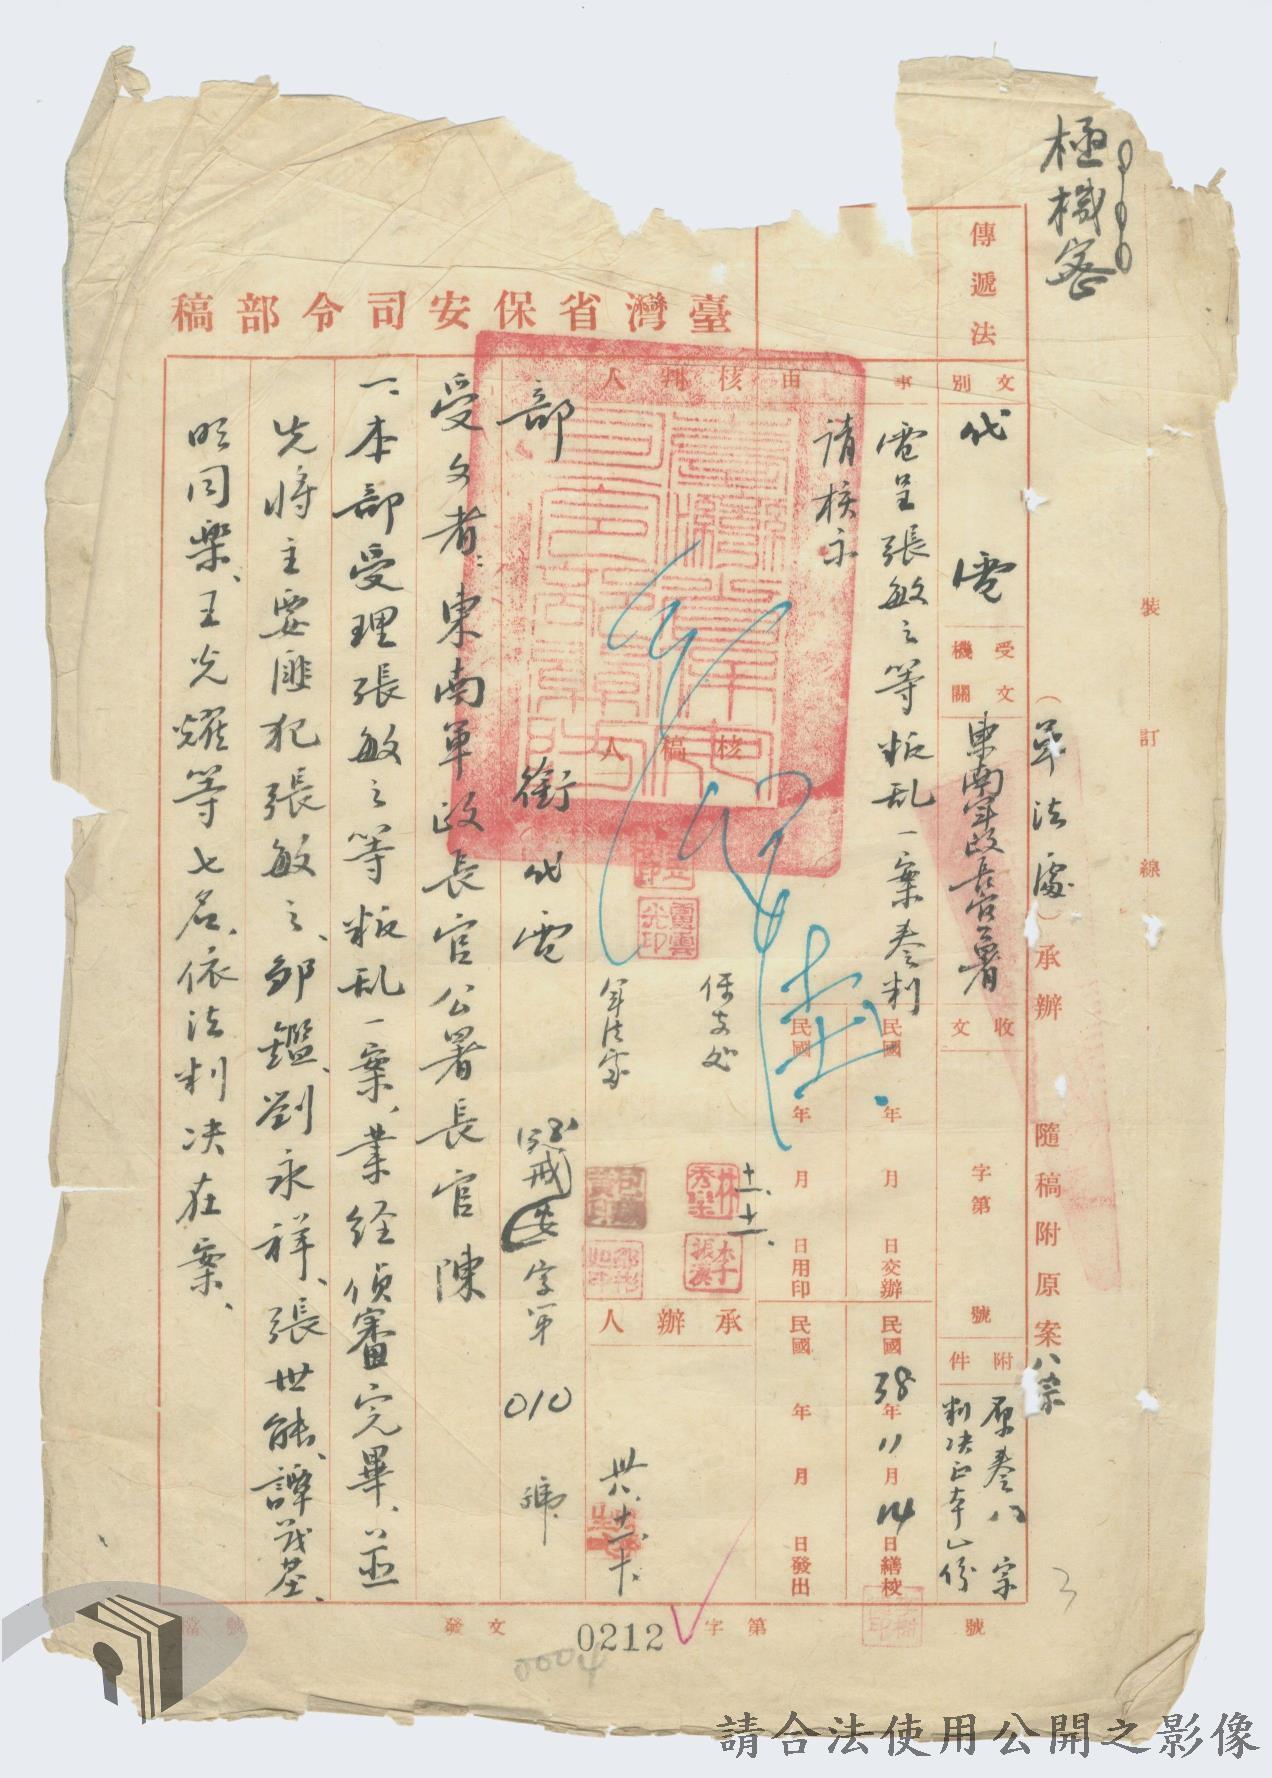 極機密
裝訂線
（軍法處）承辦 隨稿附原案八宗
傳遞法
文別 代電
受文機關 東南軍政長官公署
收文 字第 號
附件 原卷八宗
判決正本一份
事由 電呈張敏之等叛乱一案卷判
請核示
民國 年 月 日交辦
民國38年11月14日繕校
民國 年 月 日用印
民國 年 月 日發出
臺灣省保安司令部稿
核判人
核稿人
保安处
十一、十一、
軍法處
承辦人
卅八、十一、十、
部銜代電
安字第010號
受文者：東南軍政長官公署長官陳
一、本部受理張敏之等叛乱一案、業经偵審完畢、並
先將主要匪犯張敏之、鄒鑑、劉永祥、張世能、譚茂基、
明同樂、王光耀等七名、依法判决在案、
號
第
字
0212
發文
檔號
0004
3
請合法使用公開之影像